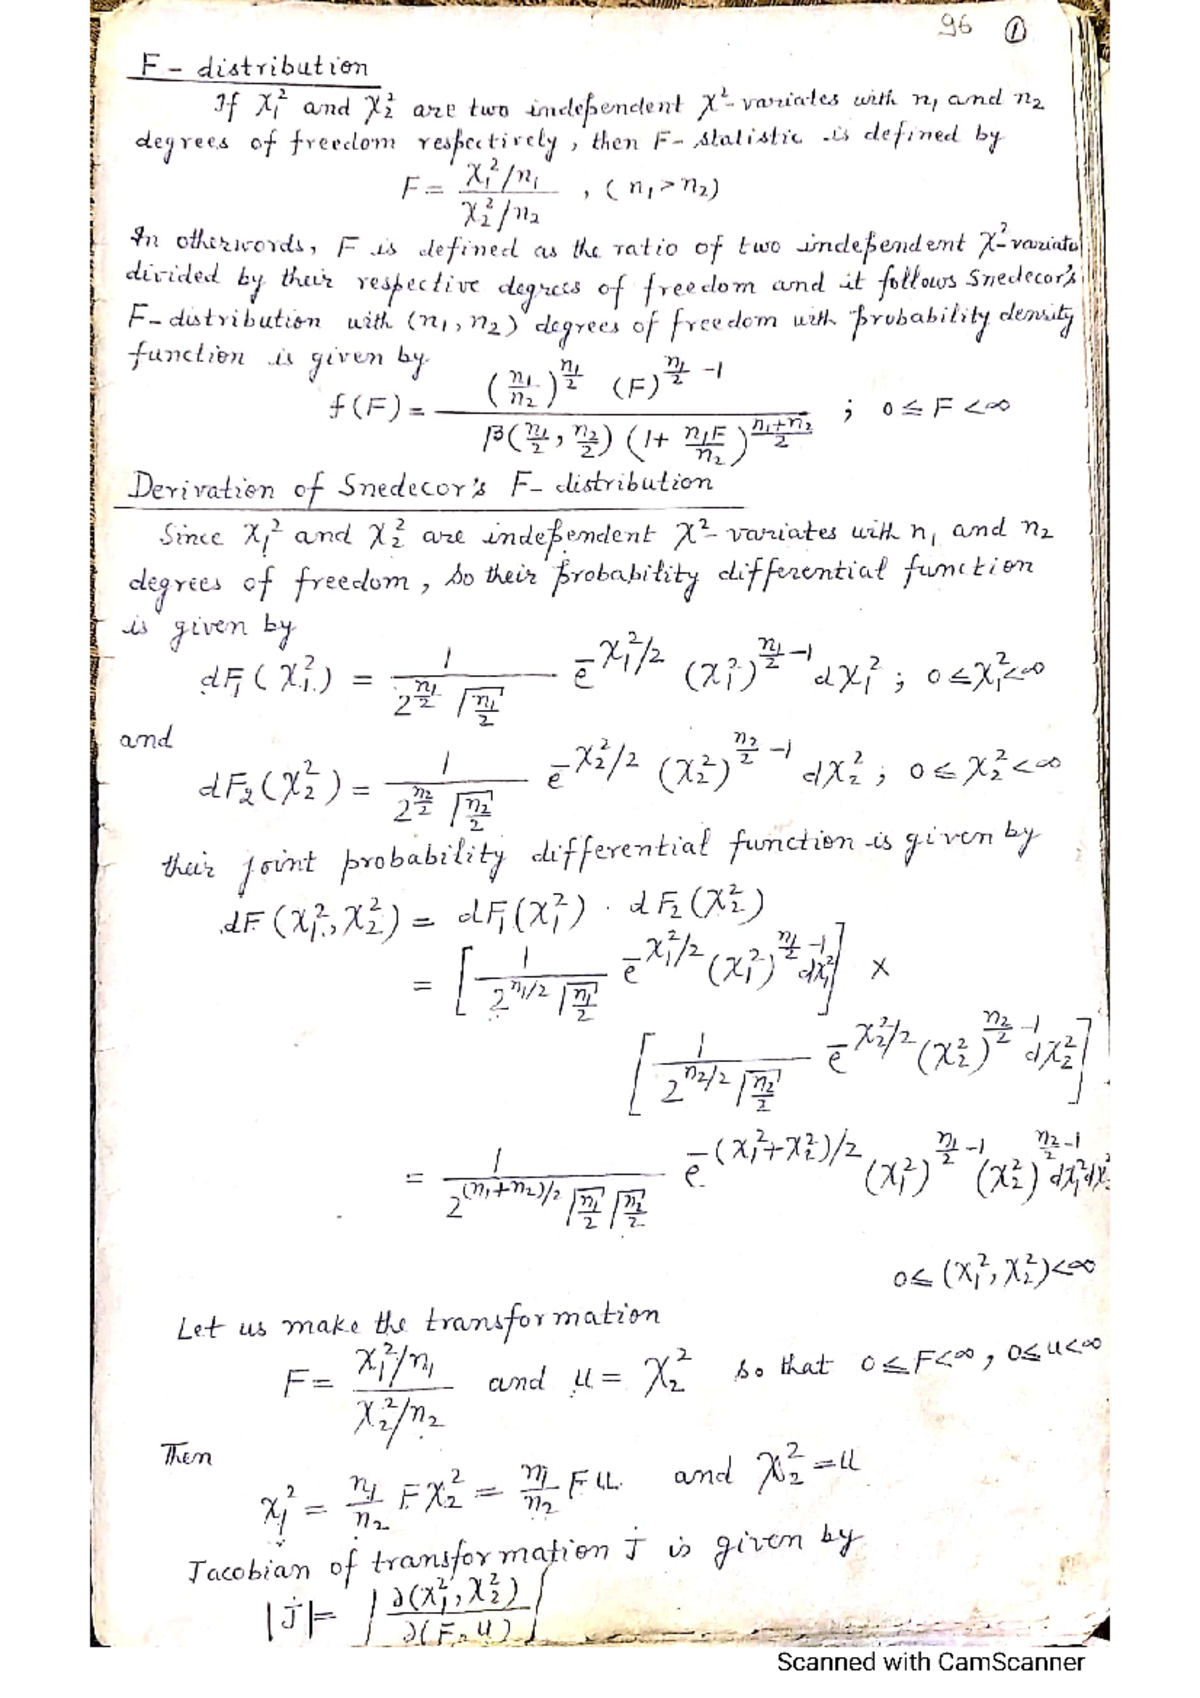 96 ①
F - distribution
If χ₁² and χ₂² are two independent χ²-variates with n₁ and n₂
degrees of freedom respectively, then F- statistic is defined by
F = (χ₁²/n₁)/(χ₂²/n₂) , (n₁>n₂)
In otherwords, F is defined as the ratio of two independent χ²-variates
divided by their respective degrees of freedom and it follows Snedecor's
F-distribution with (n₁, n₂) degrees of freedom with probability density
function is given by
f(F) = ((n₁/n₂)^(n₁/2) (F)^(n₁/2 -1))/(β(n₁/2, n₂/2) (1+ n₁F/n₂)^((n₁+n₂)/2)) ; 0≤F<∞
Derivation of Snedecor's F- distribution
Since χ₁² and χ₂² are independent χ²-variates with n₁ and n₂
degrees of freedom, so their probability differential function
is given by
dF₁(χ₁²) = 1/(2^(n₁/2) Γ(n₁/2)) e^(-χ₁²/2) (χ₁²)^(n₁/2 -1) dχ₁² ; 0≤χ₁²<∞
and
dF₂(χ₂²) = 1/(2^(n₂/2) Γ(n₂/2)) e^(-χ₂²/2) (χ₂²)^(n₂/2 -1) dχ₂² ; 0≤χ₂²<∞
their joint probability differential function is given by
dF(χ₁², χ₂²) = dF₁(χ₁²) · dF₂(χ₂²)
= [1/(2^(n₁/2) Γ(n₁/2)) e^(-χ₁²/2) (χ₁²)^(n₁/2 -1) dχ₁²] ×
[1/(2^(n₂/2) Γ(n₂/2)) e^(-χ₂²/2) (χ₂²)^(n₂/2 -1) dχ₂²]
= 1/(2^((n₁+n₂)/2) Γ(n₁/2) Γ(n₂/2)) e^(-(χ₁²+χ₂²)/2) (χ₁²)^(n₁/2 -1) (χ₂²)^(n₂/2 -1) dχ₁² dχ₂²
0≤(χ₁², χ₂²)<∞
Let us make the transformation
F = (χ₁²/n₁)/(χ₂²/n₂) and u = χ₂² so that 0≤F<∞, 0≤u<∞
Then
χ₁² = n₁/n₂ Fχ₂² = n₁/n₂ Fu and χ₂² = u
Jacobian of transformation J is given by
|J| = |∂(χ₁², χ₂²)/∂(F, u)|
Scanned with CamScanner